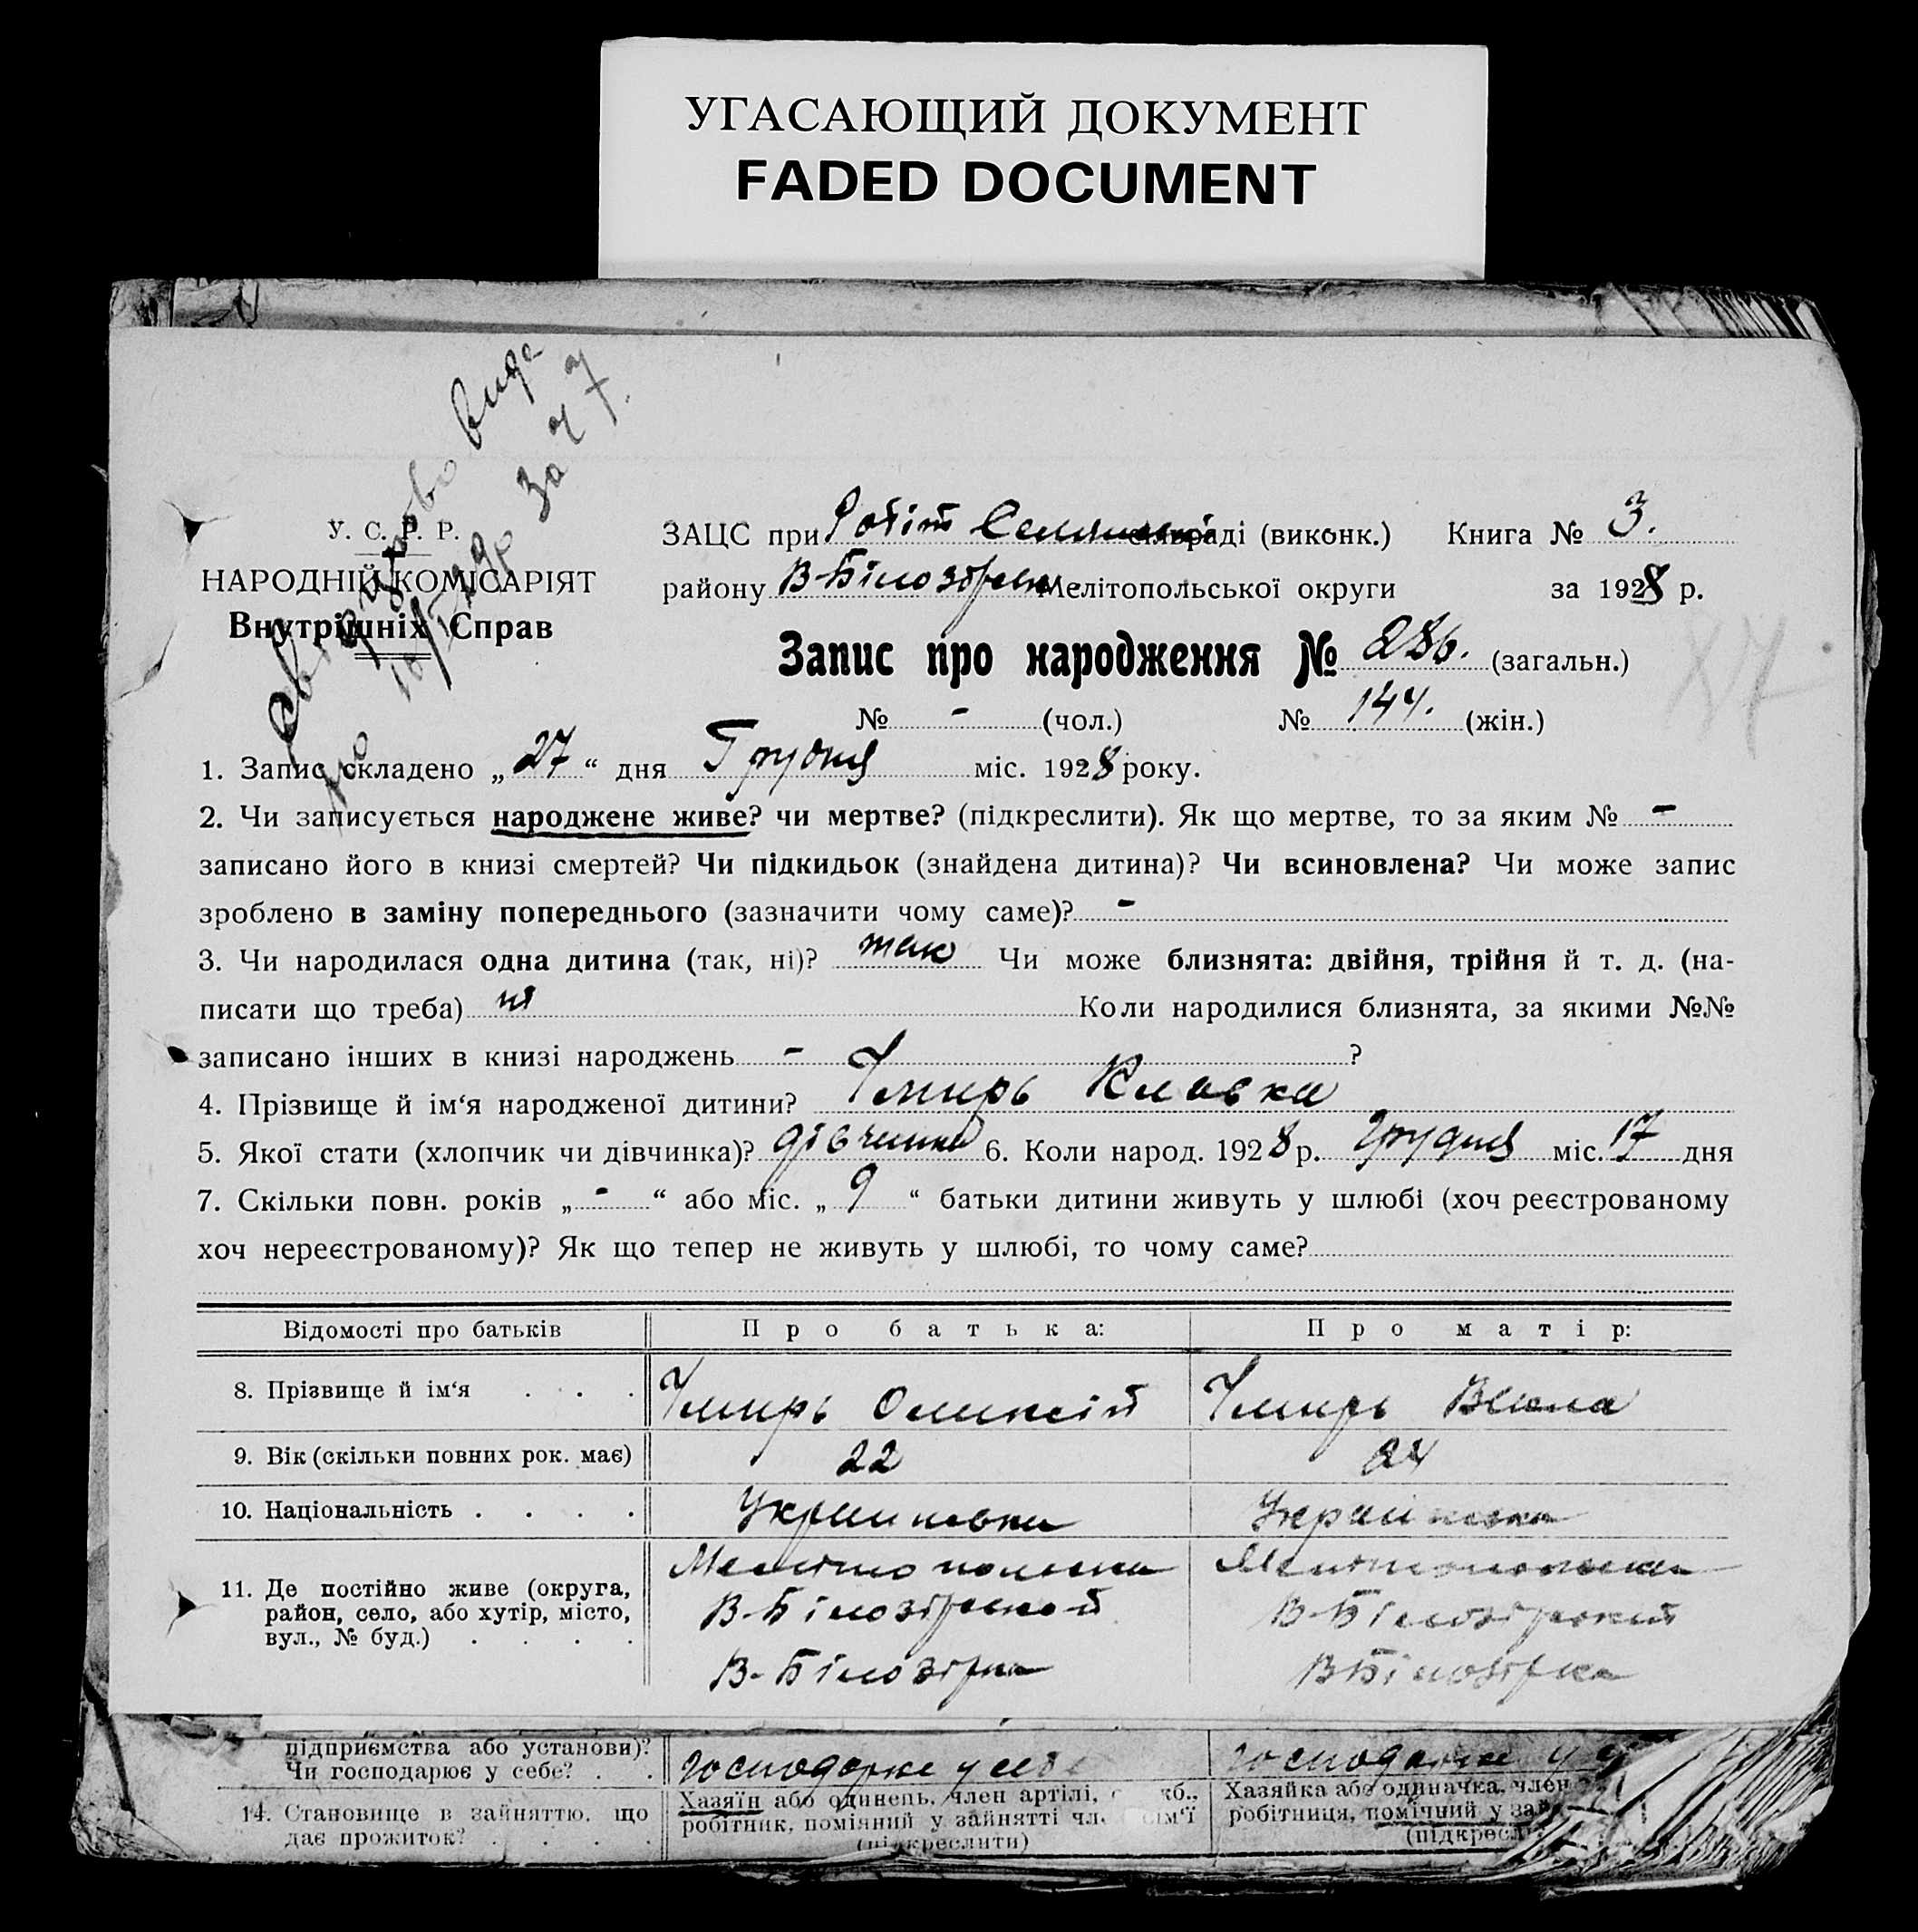 УГАСАЮЩИЙ ДОКУМЕНТ
FADED DOCUMENT
У. С. Р. Р.
НАРОДНІЙ КОМІСАРІЯТ
Внутрішніх Справ
ЗАЦС при сільраді (виконк.) Книга № 3.
району В-Білозірськ Мелітопольської округи за 1928 р.
Запис про народження № 286. (загальн.)
№ - (чол.) № 144. (жін.)
1. Запис складено „27“ дня Грудня міс. 1928 року.
2. Чи записується народжене живе? чи мертве? (підкреслити). Як що мертве, то за яким № -
записано його в книзі смертей? Чи підкидьок (знайдена дитина)? Чи всиновлена? Чи може запис
зроблено в заміну попереднього (зазначити чому саме)? -
3. Чи народилася одна дитина (так, ні)? так Чи може близнята: двійня, трійня й т. д. (на-
писати що треба) ні Коли народилися близнята, за якими №№
записано інших в книзі народжень - ?
4. Прізвище й ім‘я народженої дитини? Чмирь Клавка
5. Якої стати (хлопчик чи дівчинка)? дівчинка 6. Коли народ. 1928 р. грудня міс. 17 дня
7. Скільки повн. років „-“ або міс. „9“ батьки дитини живуть у шлюбі (хоч реєстрованому
хоч нереєстрованому)? Як що тепер не живуть у шлюбі, то чому саме?
Відомості про батьків Про батька: Про матір:
8. Прізвище й ім‘я . . . Чмирь Олексій Чмирь
9. Вік (скільки повних рок. має) 22 24
10. Національність . . . . Українська Українська
11. Де постійно живе (округа, Мелітопольська Мелітопольська
район, село, або хутір, місто, В-Білозірський В-Білозірський
вул., № буд.) . . . . В-Білозірка В-Білозірка
підприємства або установи)?
Чи господарює у себе? . . господарює у себе господарює у
14. Становище в зайняттю, що Хазяїн або одинець, член артілі, Хазяйка або одиначка, член
дає прожиток? . . . . робітник, поміяний у зайнятті робітниця, помічний у
(підкреслити)